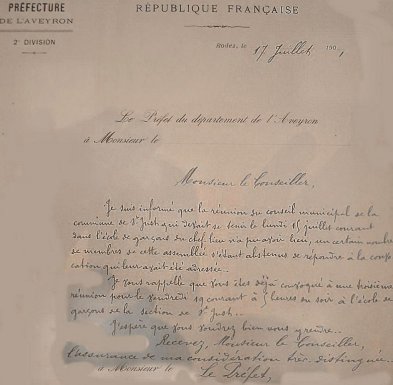 PRÉFECTURE
DE L'AVEYRON
2e DIVISION
RÉPUBLIQUE FRANÇAISE
Rodez, le 17 Juillet 1901
Le Préfet du département de l'Aveyron
à Monsieur le
Monsieur le Conseiller,
Je suis informé que la réunion du conseil municipal de la
commune de St Just qui devait se tenir le lundi 15 juillet courant
dans l'école de garçons du chef lieu n'a pu avoir lieu, un certain nombre
de membres de cette assemblée s'étant abstenus de répondre à la convo
cation qui leur avait été adressée.
Je vous rappelle que vous êtes déjà convoqué à une troisième
réunion pour le vendredi 19 courant à 5 heures du soir à l'école de
garçons de la section de St Just.
J'espère que vous voudrez bien vous y rendre.
Recevez, Monsieur le Conseiller,
l'assurance de ma considération très distinguée.
à Monsieur le
Le Préfet,